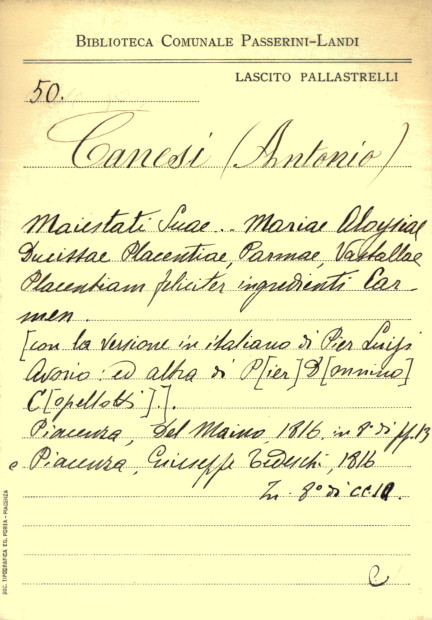 BIBLIOTECA COMUNALE PASSERINI-LANDI
LASCITO PALLASTRELLI
50.
Canesi (Antonio)
Maiestati Suae .. Mariae Aloysiae
Ducissae Placentiae, Parmae, Vastallae
Placentiam feliciter ingredienti Car-
men.
[con la versione in italiano di Pier Luigi
: ed altra di P[ier] D[omnino]
C[opellotti].].
Piacenza, Del Maino, 1816, in 8° di pp. 13
e Piacenza, Giuseppe Tedeschi, 1816
In 8° di cc
C
SOC. TIPOGRAFICA ED. PORTA - PIACENZA